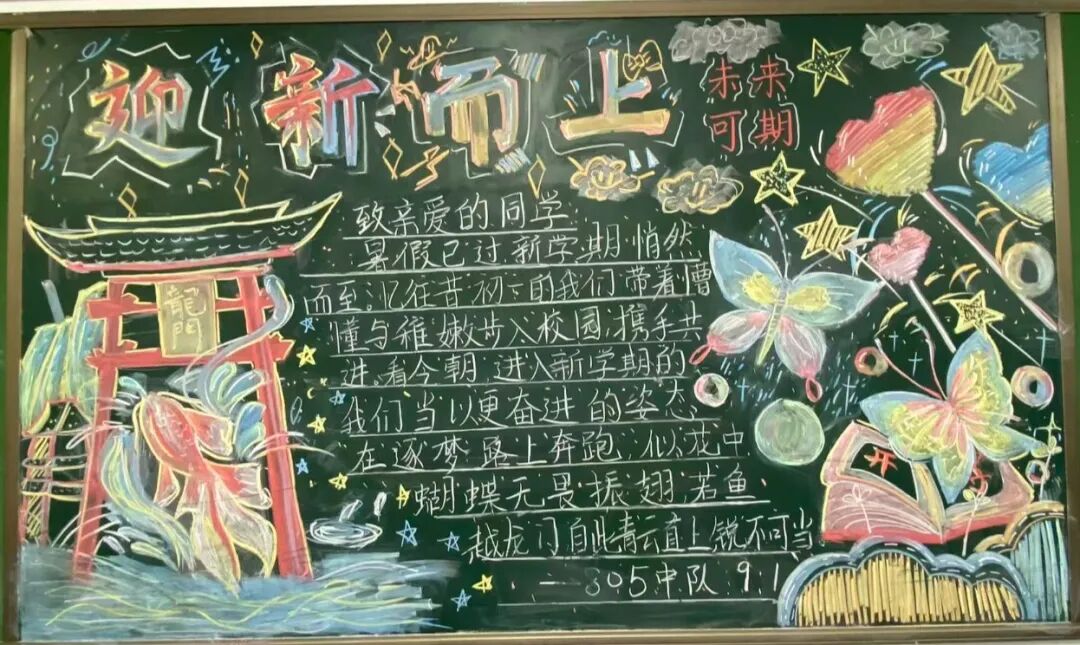 迎新而上
未来
可期
龍門
致亲爱的同学
暑假已过新学期悄然
而至。忆往昔初三的我们带着懵
懂与稚嫩步入校园，携手共
进。看今朝，进入新学期的
我们当以更奋进的姿态
在逐梦路上奔跑，似花中
蝴蝶无畏振翅，若鱼
越龙门自此青云直上锐不可当
—305中队 9.1
开